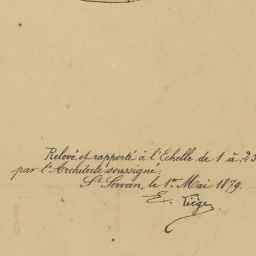 Relevé et rapporté à l'Echelle de 1 à 25
par l'Architecte soussigné.
St Servan, le 1er Mai 1879.
E.